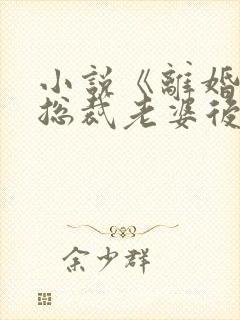 小說《離婚
总裁老婆後
余少群